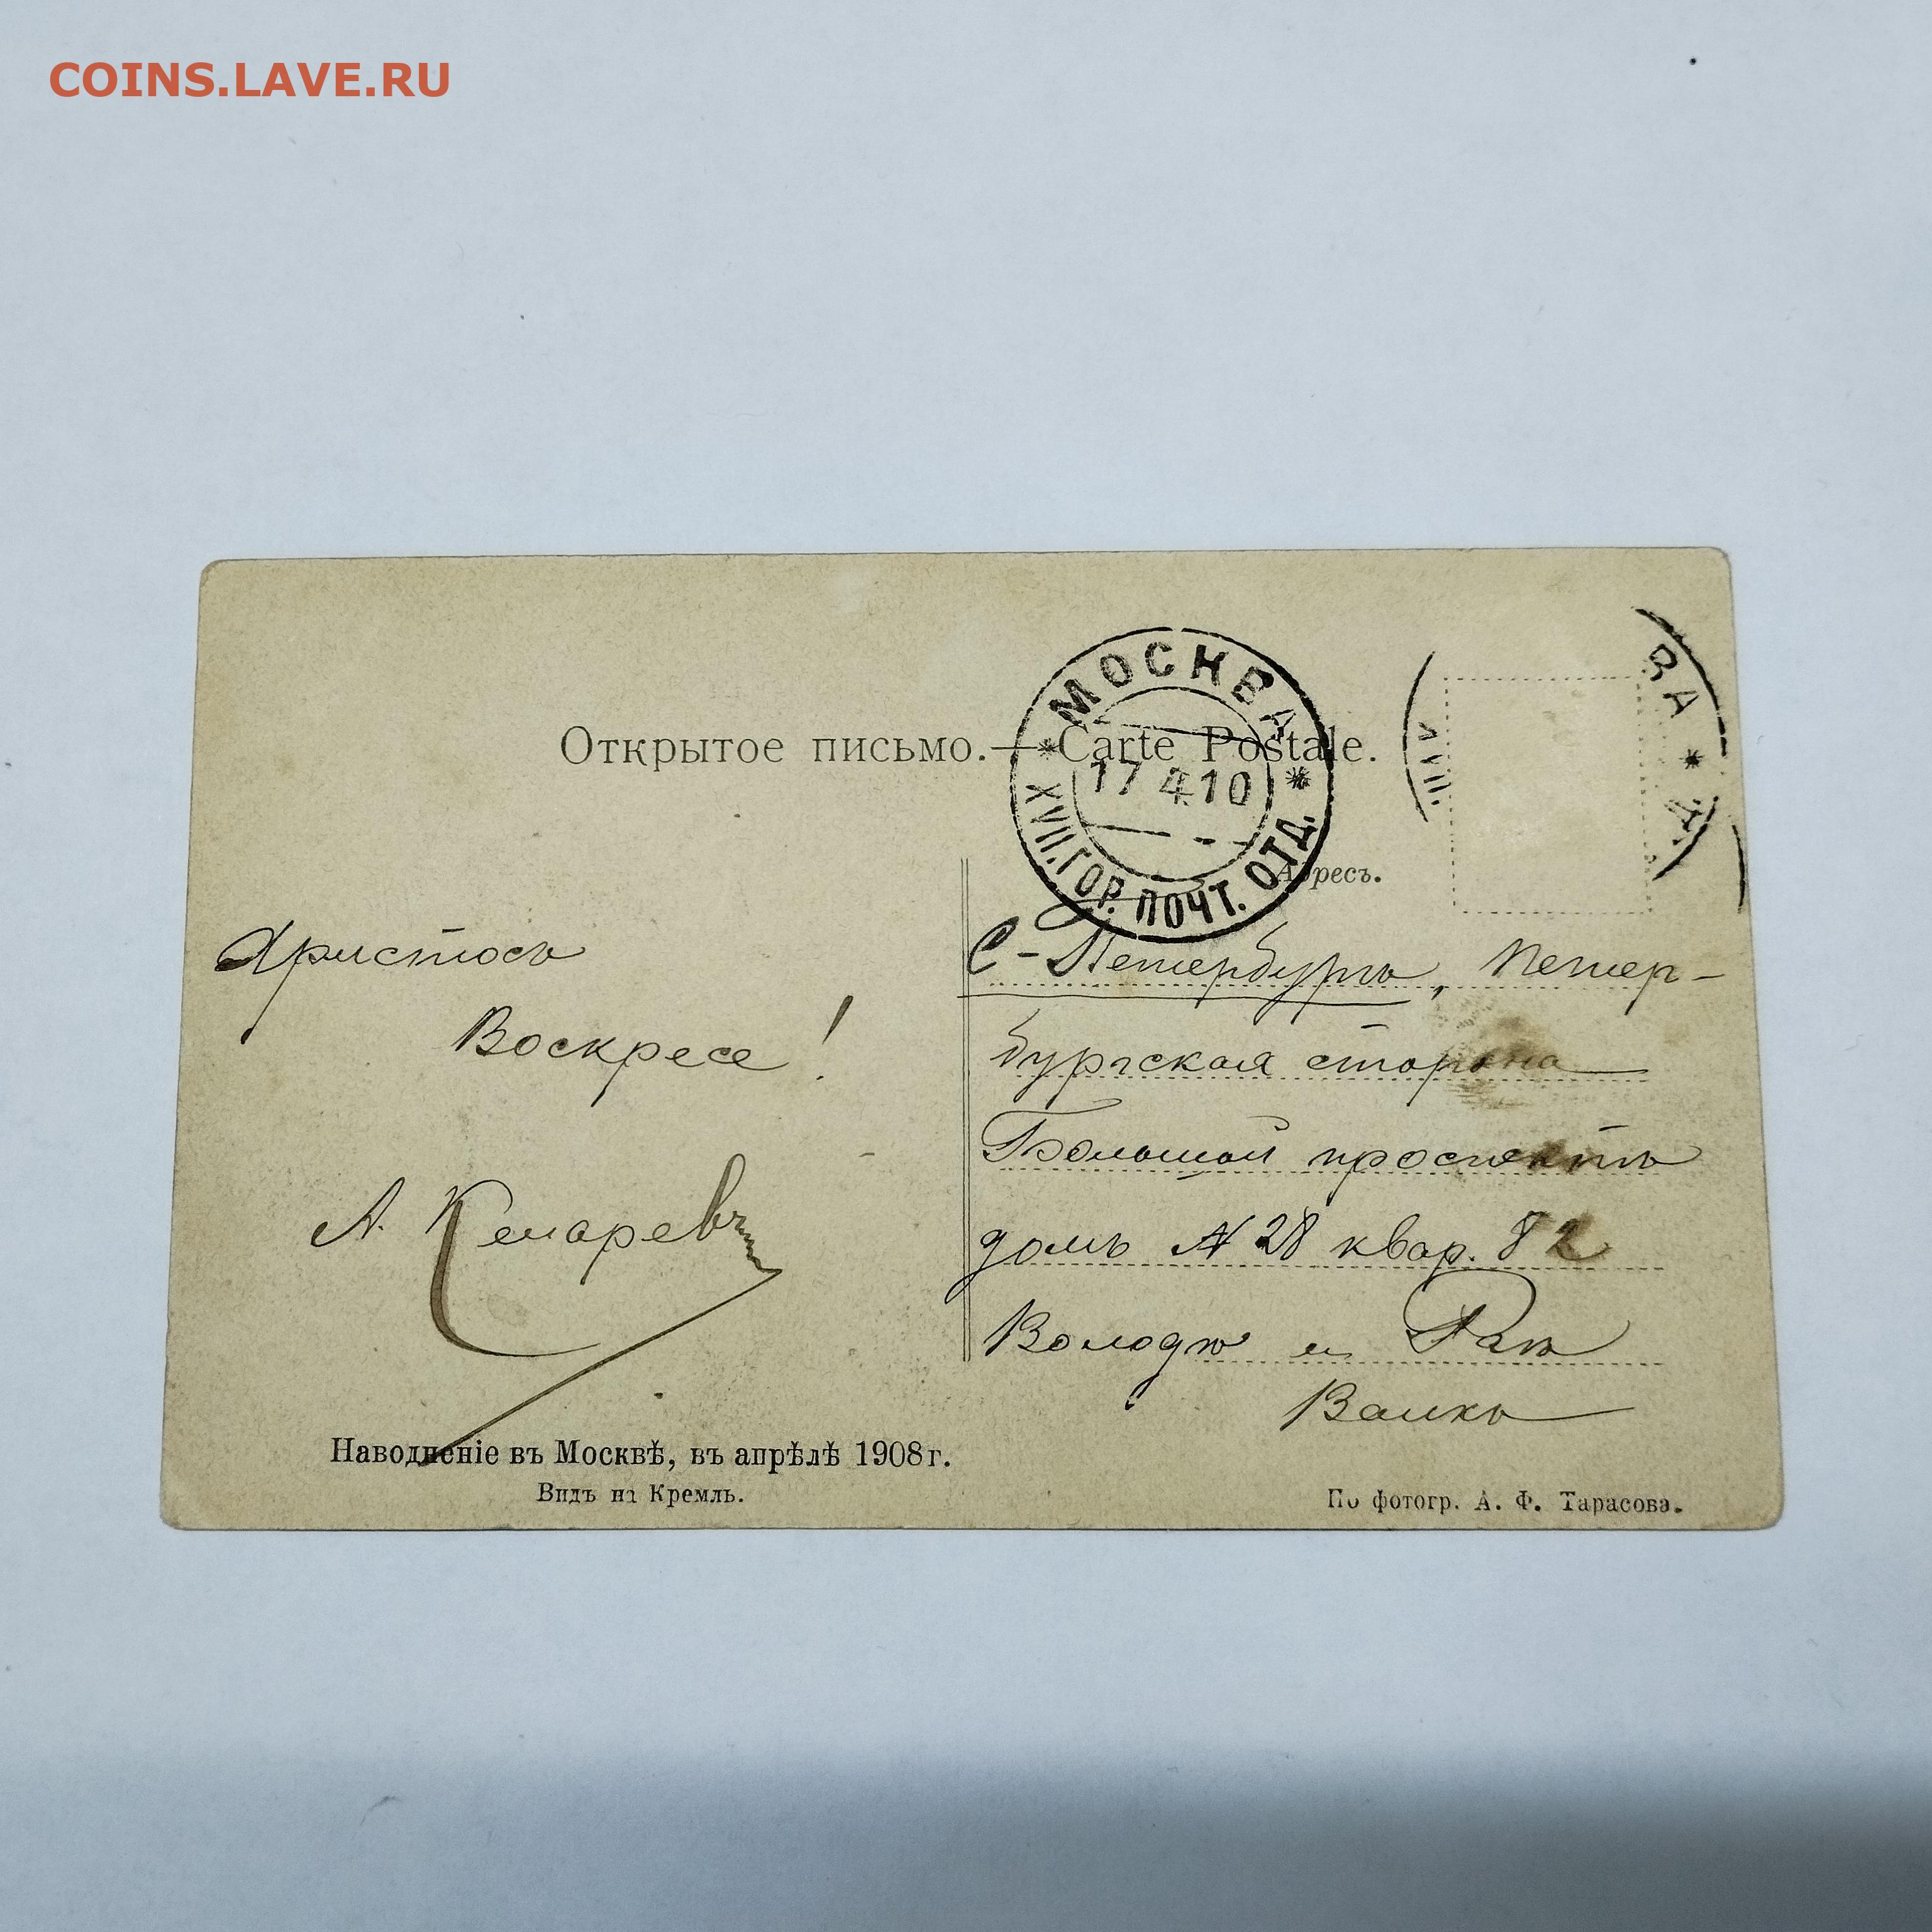 COINS.LAVE.RU
Открытое письмо. — Carte Postale.
МОСКВА
17 4 10
XVII. ГОР. ПОЧТ. ОТД.
ВА
Адресъ.
Христосъ
Воскресе!
А.
С-Петербургъ, Петер-
бургская сторона
Большой проспектъ
домъ № 28 квар. 82
Володѣ и
Наводненіе въ Москвѣ, въ апрѣлѣ 1908 г.
Видъ на Кремль.
По фотогр. А. Ф. Тарасова.